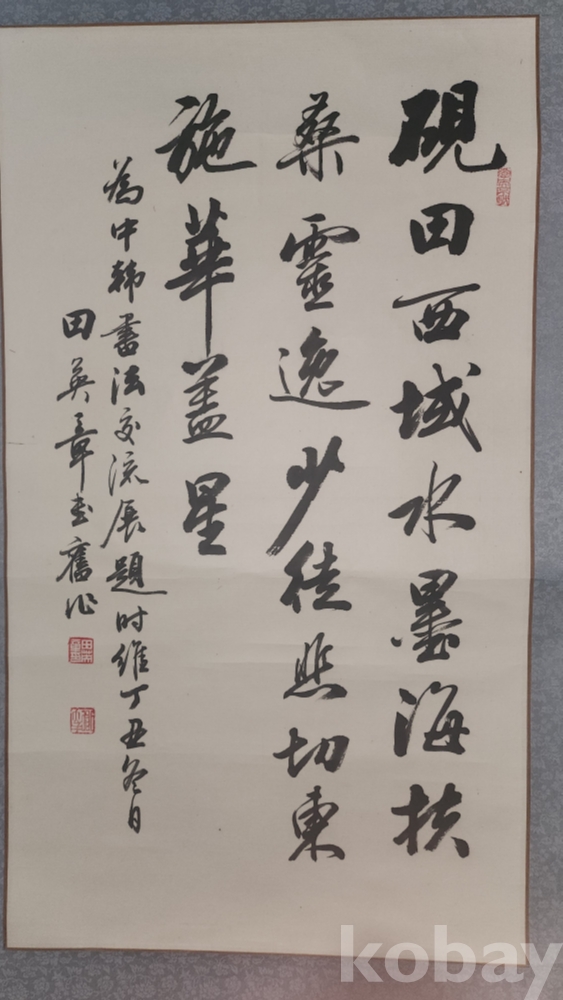 硯田西域水墨海扶
桑靈逸少徒悲切東
施華蓋星
為中韩書法交流展題时維丁丑冬日
田英章書舊作
kobay